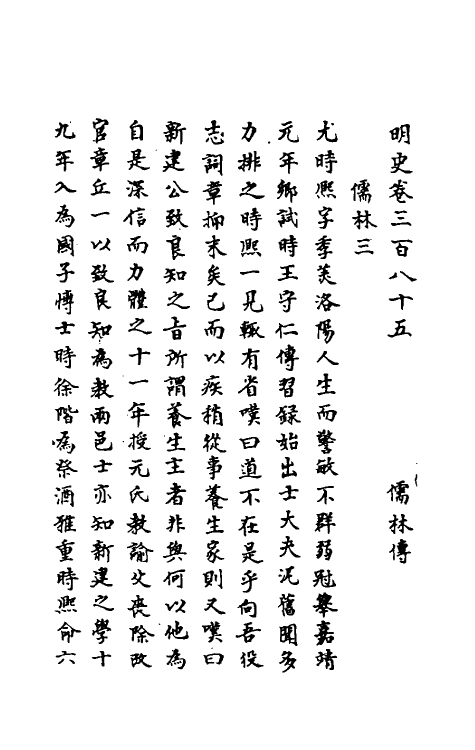 明史卷三百八十五 儒林傳
儒林三
尤時熙字季美洛陽人生而警敏不群弱冠舉嘉靖
元年鄉試時王守仁傳習錄始出士大夫泥舊聞多
力排之時熙一見輒有省嘆曰道不在是乎向吾役
志詞章抑末矣已而以疾稍從事養生家則又嘆曰
新建公致良知之旨所謂養生主者非與何以他為
自是深信而力體之十一年授元氏教諭父喪除改
官章丘一以致良知為教兩邑士亦知新建之學十
九年入為國子博士時徐階為祭酒雅重時熙命六